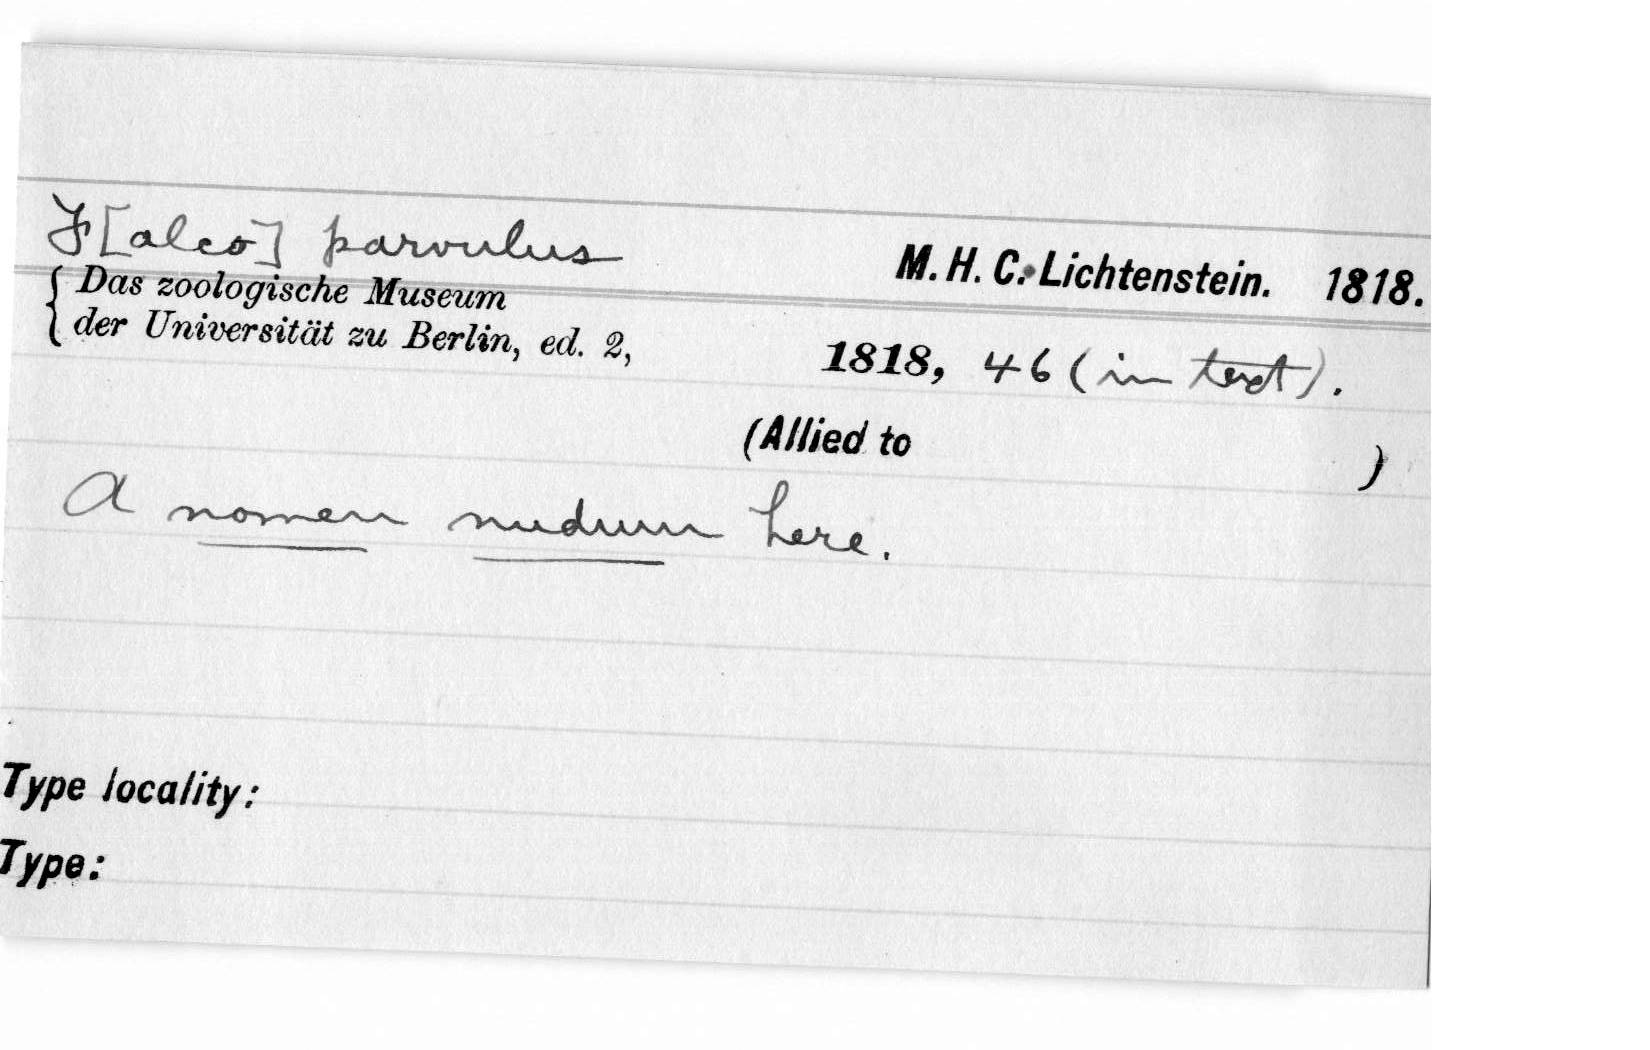 F[alco] parvulus
M. H. C. Lichtenstein. 1818.
Das zoologische Museum
der Universität zu Berlin, ed. 2,
1818, 46 (in text).
(Allied to )
A nomen nudum here.
Type locality:
Type: